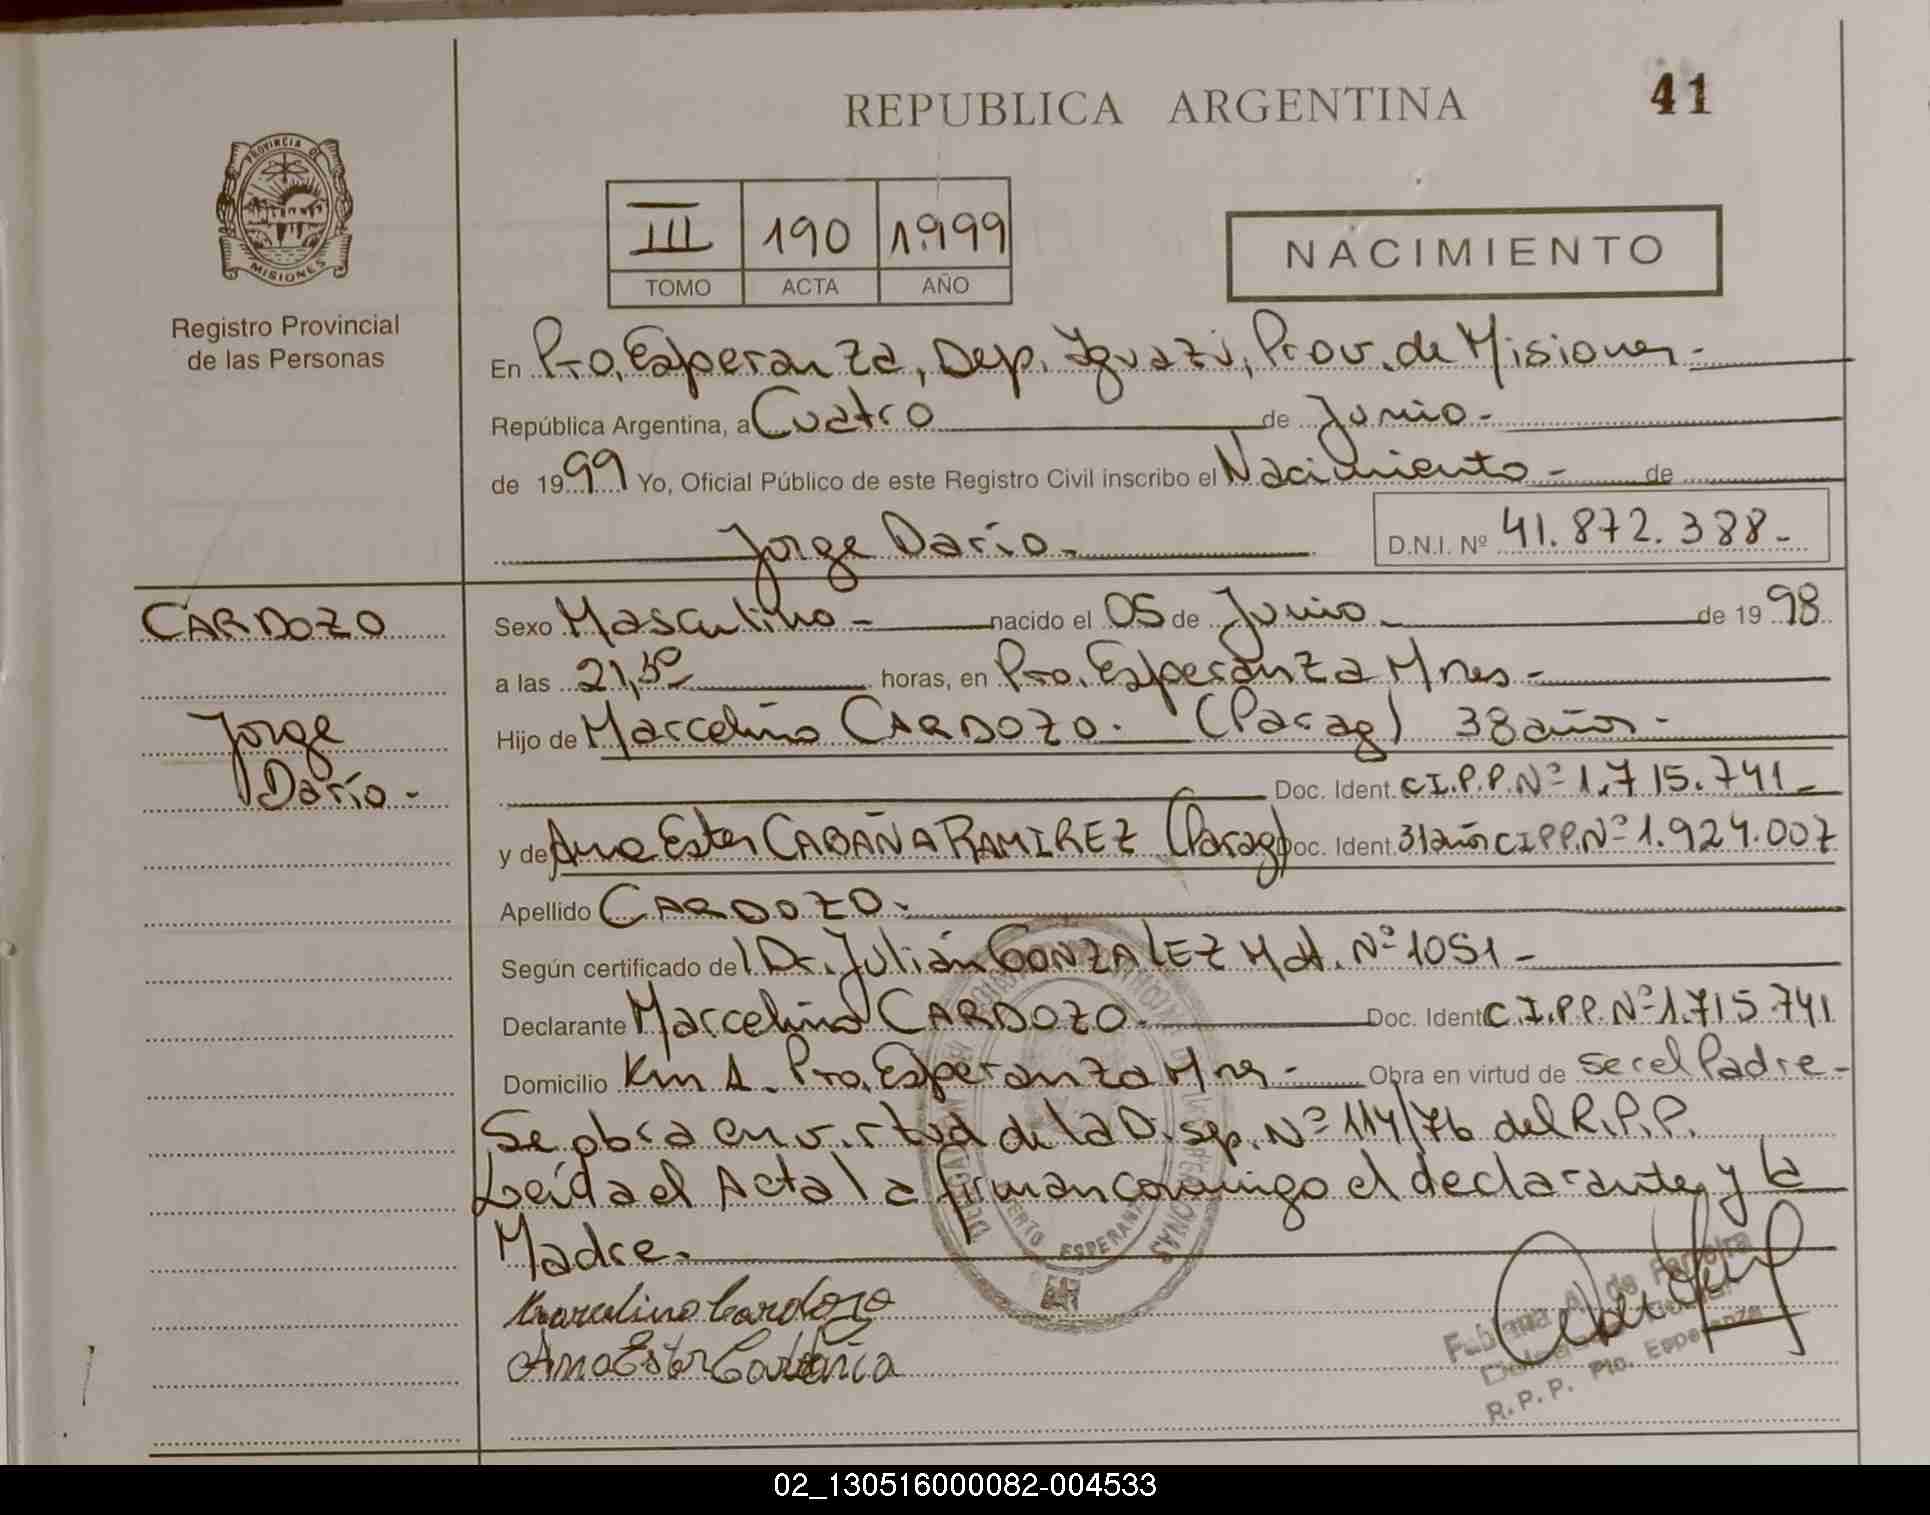 REPUBLICA ARGENTINA
41
PROVINCIA DE
MISIONES
Registro Provincial
de las Personas
III 190 1999
TOMO ACTA AÑO
NACIMIENTO
En Pto. Esperanza, Dep. Iguazú, Prov. de Misiones.-
República Argentina, a Cuatro de Junio.-
de 1999 Yo, Oficial Público de este Registro Civil inscribo el Nacimiento - de
Jorge Darío.-
D.N.I. Nº 41.872.388-
CARDOZO
Jorge
Darío.-
Sexo Masculino - nacido el 05 de Junio - de 1998
a las 21,30 horas, en Pto. Esperanza Mnes -
Hijo de Marcelino CARDOZO. (Parag) 38 años.-
Doc. Ident. C.I.P.P. Nº 1.715.741-
y de Ana Ester CABAÑA RAMIREZ (Parag) Doc. Ident. 31 años C.I.P.P. Nº 1.924.007
Apellido CARDOZO.-
Según certificado del Dr. Julián GONZALEZ Mat. Nº 1051-
Declarante Marcelino CARDOZO.- Doc. Ident C.I.P.P. Nº 1.715.741
Domicilio Km 1. Pto. Esperanza Mnes - Obra en virtud de ser el Padre-
Se obra en virtud de la Disp. Nº 114/76 del R.P.P.
Leída el Acta la firman conmigo el declarante y la
Madre.-
Marcelino Cardozo
Ana Ester Cabaña
PUERTO ESPERANZA
Fabiana A. de Ferreira
R.P.P. Pto. Esperanza
02_130516000082-004533